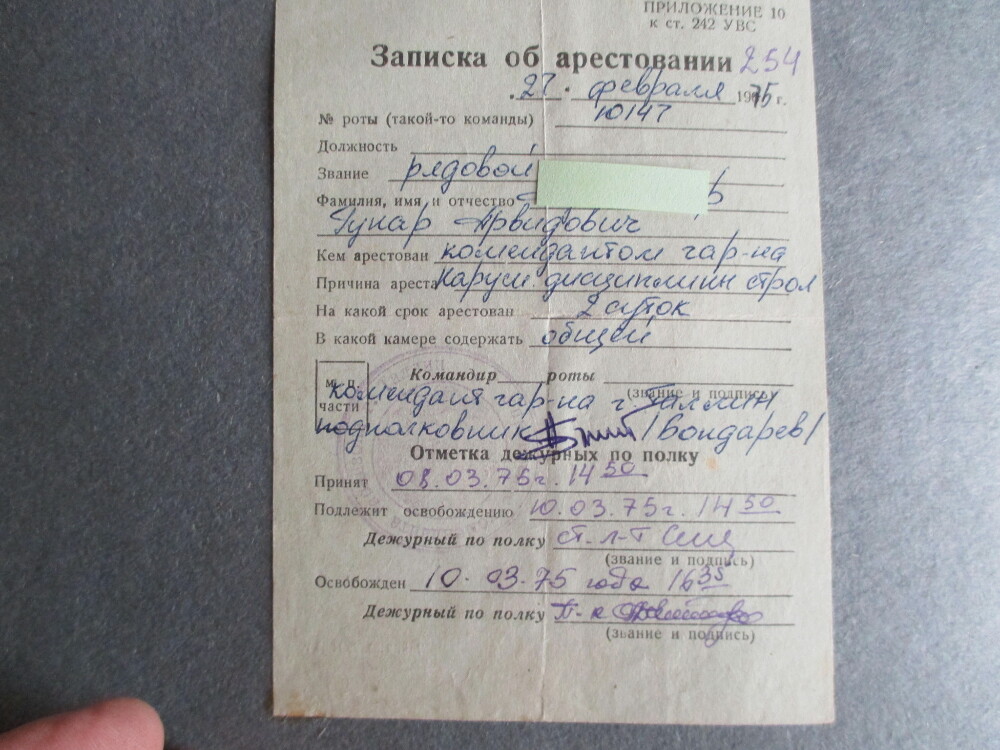 ПРИЛОЖЕНИЕ 10
к ст. 242 УВС
Записка об арестовании 254
27. февраля 1975 г.
№ роты (такой-то команды) 10147
Должность
Звание рядовой
Фамилия, имя и отчество
Гунар Арвидович
Кем арестован комендантом гар-на
Причина ареста Наруш. дисциплин строя
На какой срок арестован 2 суток
В какой камере содержать общей
М. П. части
Командир роты
(звание и подпись)
Комендант гар-на г Таллин
подполковник /Бондарев/
Отметка дежурных по полку
Принят 08.03.75г. 14 50
Подлежит освобождению 10.03.75г. 14 50
Дежурный по полку ст. л-т
(звание и подпись)
Освобожден 10.03.75 года 16 35
Дежурный по полку
(звание и подпись)